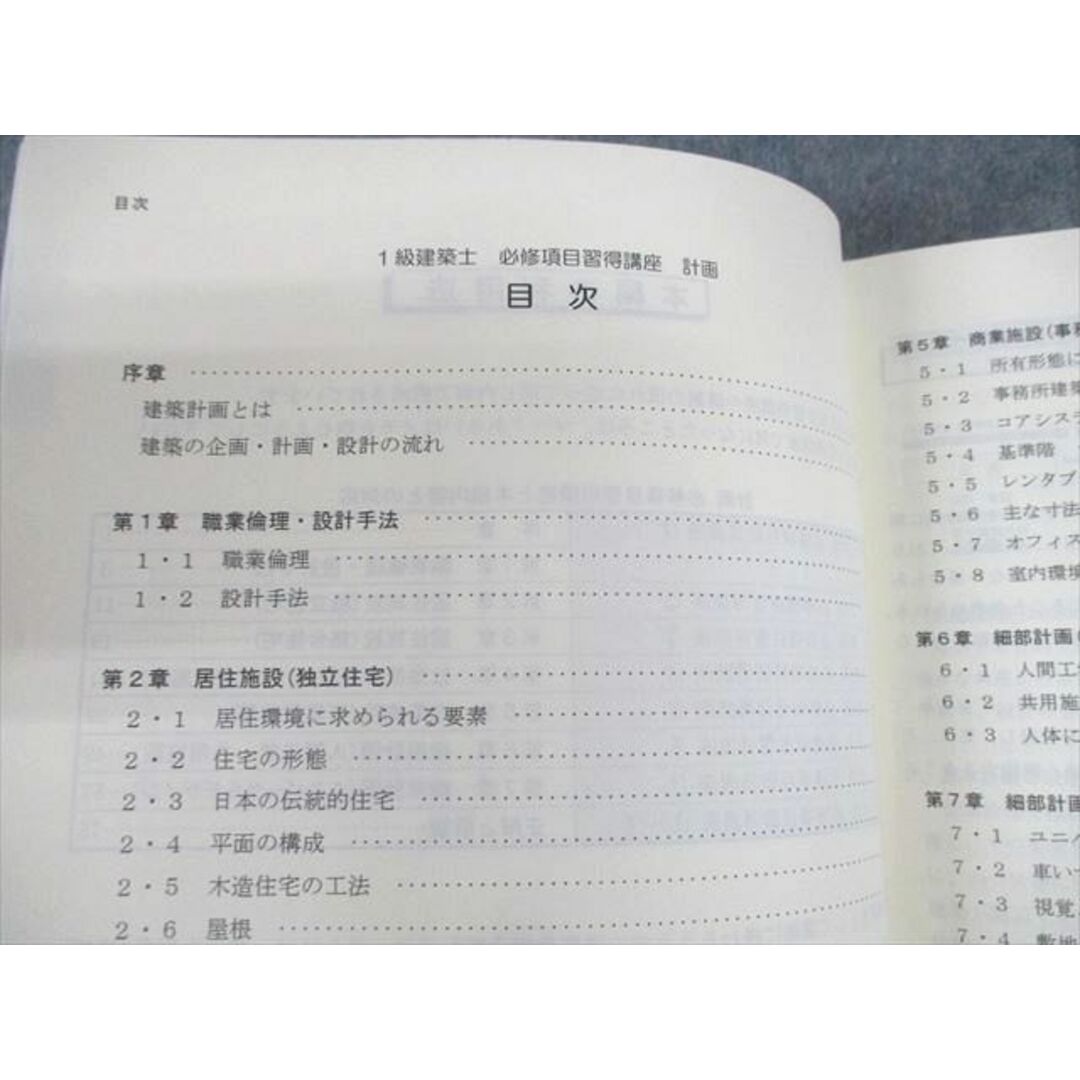 目次
1級建築士 必修項目習得講座 計画
目 次
序章
建築計画とは
建築の企画・計画・設計の流れ
第1章 職業倫理・設計手法
1・1 職業倫理
1・2 設計手法
第2章 居住施設(独立住宅)
2・1 居住環境に求められる要素
2・2 住宅の形態
2・3 日本の伝統的住宅
2・4 平面の構成
2・5 木造住宅の工法
2・6 屋根
第5章 商業施設(事務
5・1 所有形態に
5・2 事務所建築
5・3 コアシステ
5・4 基準階
5・5 レンタブ
5・6 主な寸法
5・7 オフィス
5・8 室内環境
第6章 細部計画(
6・1 人間工学
6・2 共用施
6・3 人体に
第7章 細部計画
7・1 ユニ
7・2 車い
7・3 視覚
7・4 敷地